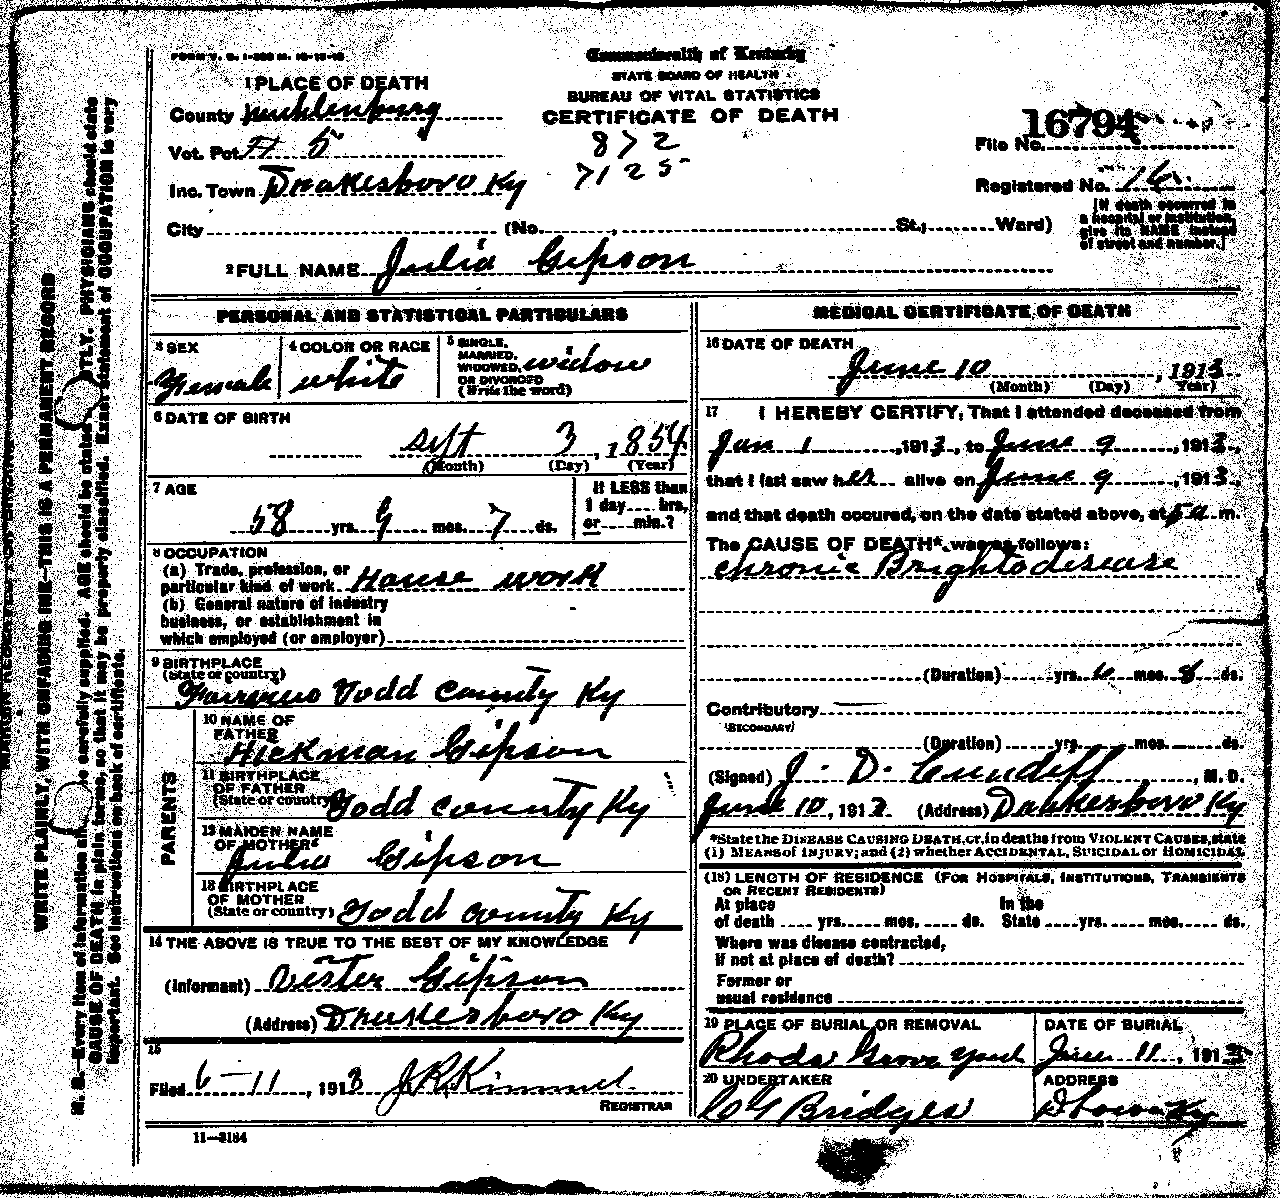 FORM V. S. 1-
Commonwealth of Kentucky
STATE BOARD OF HEALTH
BUREAU OF VITAL STATISTICS
CERTIFICATE OF DEATH
872
7125
1 PLACE OF DEATH
County Muhlenburg
Vot. Pct. # 5
Inc. Town Drakesboro Ky
City (No. , St.; Ward)
File No. 16794
Registered No. 16.
[If death occurred in
a hospital or institution,
give its NAME instead
of street and number.]
2 FULL NAME Julia Gipson
PERSONAL AND STATISTICAL PARTICULARS
3 SEX Female
4 COLOR OR RACE white
5 SINGLE,
MARRIED,
WIDOWED,
OR DIVORCED
(Write the word) widow
6 DATE OF BIRTH
Sept 3, 1854
(Month) (Day) (Year)
7 AGE
58 yrs. 9 mos. 7 ds.
If LESS than
1 day hrs,
or min.?
8 OCCUPATION
(a) Trade, profession, or
particular kind of work House work
(b) General nature of industry
business, or establishment in
which employed (or employer)
9 BIRTHPLACE
(State or country)
Todd County Ky
PARENTS
10 NAME OF
FATHER
Hickman Gipson
11 BIRTHPLACE
OF FATHER
(State or country) Todd County Ky
12 MAIDEN NAME
OF MOTHER
Julia Gipson
13 BIRTHPLACE
OF MOTHER
(State or country) Todd County Ky
14 THE ABOVE IS TRUE TO THE BEST OF MY KNOWLEDGE
(Informant) Gipson
(Address) Drakesboro Ky
15
Filed 6-11, 1913 J.R. Kimmel
REGISTRAR
11-3184
MEDICAL CERTIFICATE OF DEATH
16 DATE OF DEATH
June 10, 1913
(Month) (Day) Year)
17 I HEREBY CERTIFY, That I attended deceased from
Jan 1, 1913, to June 9, 1913,
that I last saw her alive on June 9, 1913,
and that death occured, on the date stated above, at 5 a m.
The CAUSE OF DEATH* was as follows:
chronic Brights disease
(Duration) yrs. 6 mos. 8 ds.
Contributory
(SECONDARY)
(Duration) yrs. mos. ds.
(Signed) J. D. Cundiff, M. D.
June 10, 1913 (Address) Drakesboro Ky
*State the DISEASE CAUSING DEATH, or, in deaths from VIOLENT CAUSES, state
(1) MEANS of INJURY; and (2) whether ACCIDENTAL, SUICIDAL or HOMICIDAL.
(18) LENGTH OF RESIDENCE (FOR HOSPITALS, INSTITUTIONS, TRANSIENTS
OR RECENT RESIDENTS)
At place In the
of death yrs. mos. ds. State yrs. mos. ds.
Where was disease contracted,
If not at place of death?
Former or
usual residence
19 PLACE OF BURIAL OR REMOVAL
Rhoda Grave Yard
DATE OF BURIAL
June 11, 191
20 UNDERTAKER
Bridges
ADDRESS
Ky
WRITE PLAINLY, WITH UNFADING INK—THIS IS A PERMANENT RECORD
N. B.—Every item of information should be carefully supplied. AGE should be stated EXACTLY. PHYSICIANS should state
CAUSE OF DEATH in plain terms, so that it may be properly classified. Exact statement of OCCUPATION is very
important. See instructions on back of certificate.